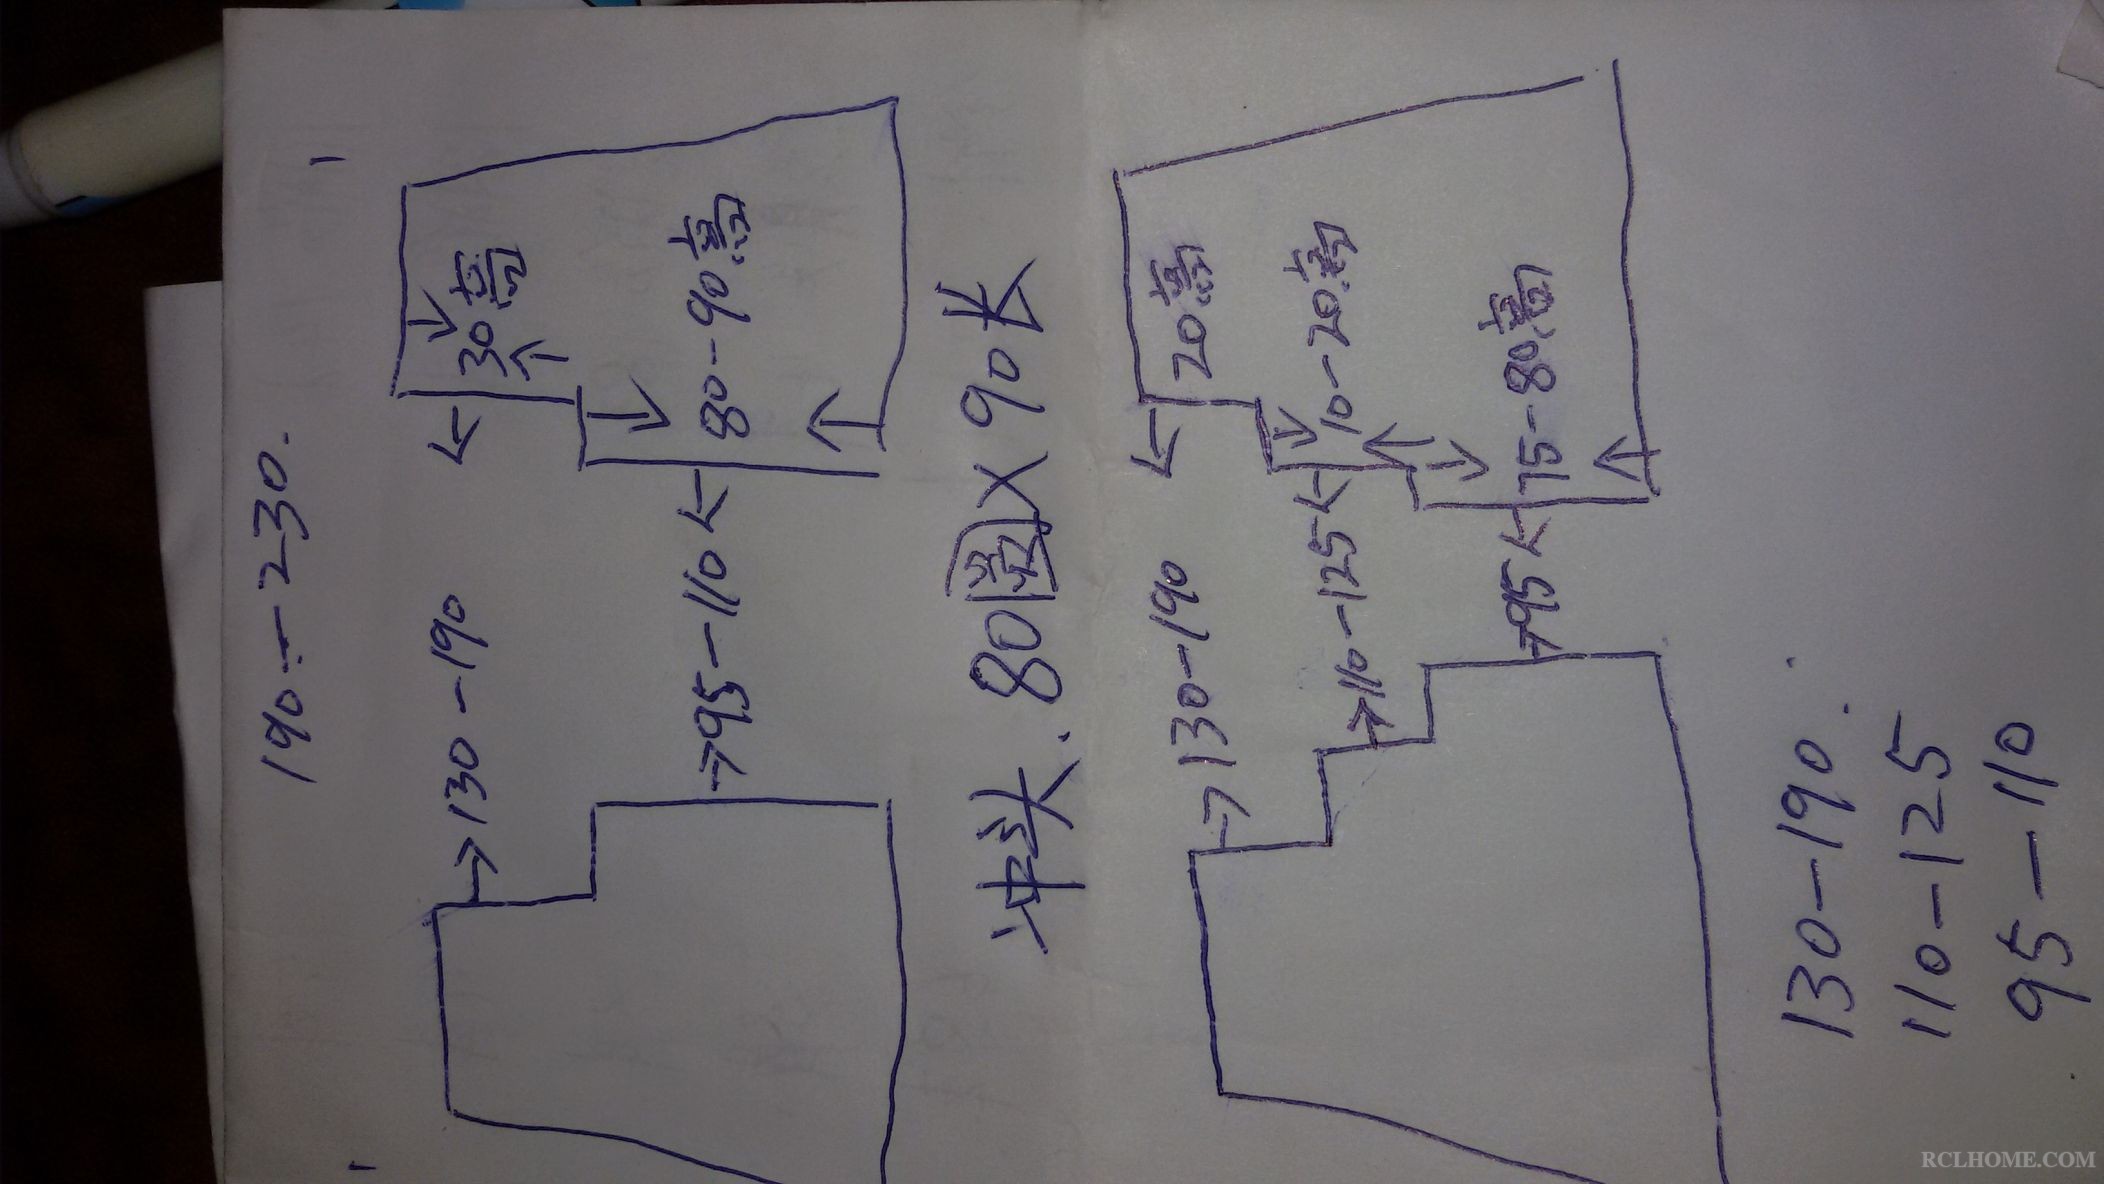 190-230.
130-190
30高
95-110
80-90高
冲头.80圆X90长
130-190
20高
110-125
10-20高
95
75-80高
130-190.
110-125
95-110
RCLHOME.COM